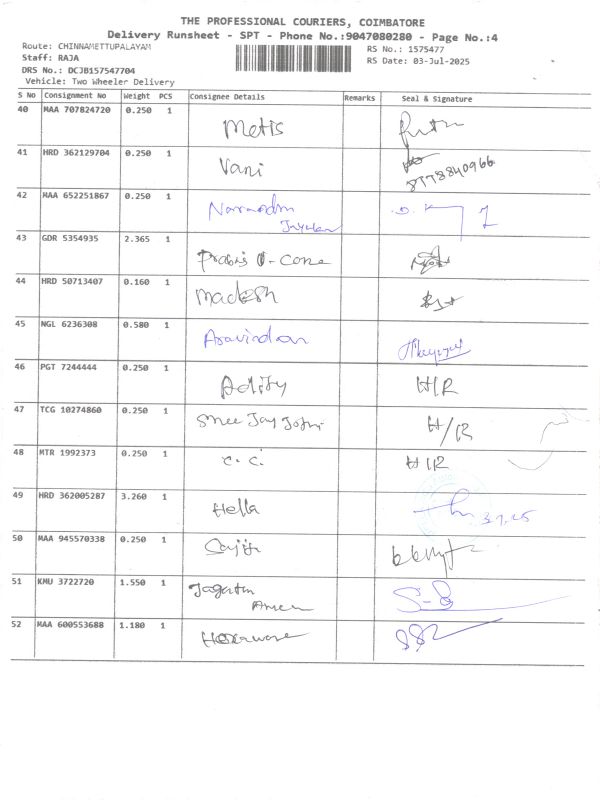 THE PROFESSIONAL COURIERS, COIMBATORE
Delivery Runsheet - SPT - Phone No.:9047080280 - Page No.:4
Route: CHINNAMETTUPALAYAM
RS No.: 1575477
Staff: RAJA
RS Date: 03-Jul-2025
DRS No.: DCJB157547704
Vehicle: Two Wheeler Delivery
S No Consignment No Weight PCS Consignee Details Remarks Seal & Signature
40 MAA 707824720 0.250 1 Metis
41 HRD 362129704 0.250 1 Vani 8778840966
42 MAA 652251867 0.250 1
43 GDR 5354935 2.365 1
44 HRD 50713407 0.160 1 Madesh
45 NGL 6236308 0.580 1 Aravindan
46 PGT 7244444 0.250 1 Adity H/R
47 TCG 10274860 0.250 1 Shree Jay Jothi H/R
48 MTR 1992373 0.250 1 C.C. H/R
49 HRD 362005287 3.260 1 Hella 3.7.25
50 MAA 945570338 0.250 1
51 KMU 3722720 1.550 1
52 MAA 600553688 1.180 1